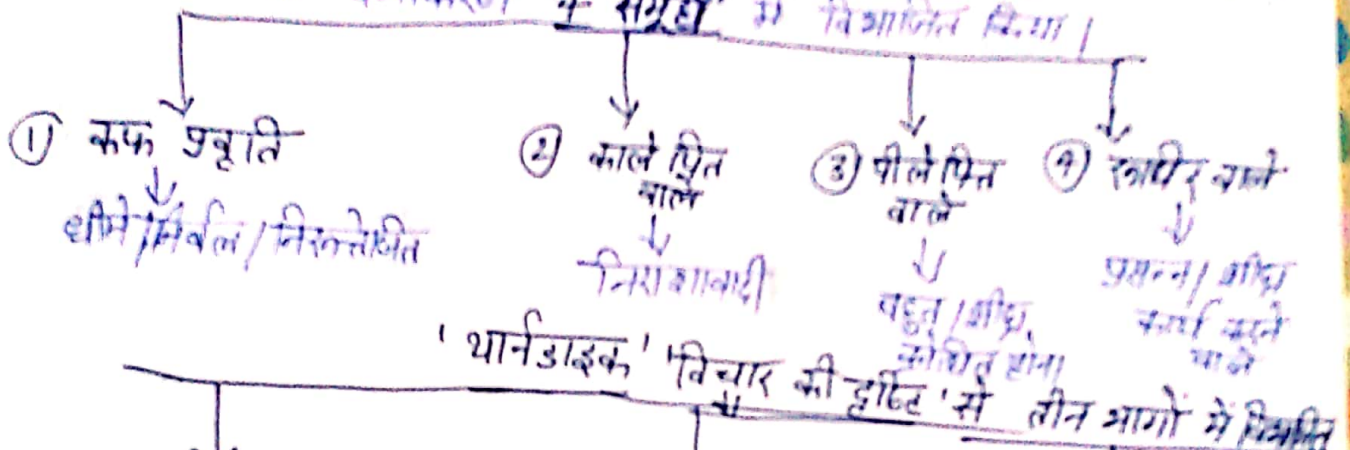 4 समूहों में विभाजित किया।
① कफ प्रवृति
धीमे/निर्बल/निरुत्तेजित
② काले पित्त
वाले
निराशावादी
③ पीले पित्त
वाले
बहुत/शीघ्र
क्रोधित होना
④ रूधिर वाले
प्रसन्न/शीघ्र
कार्य करने
वाले
'थार्नडाइक' 'विचार की दृष्टि' से तीन भागों में विभाजित